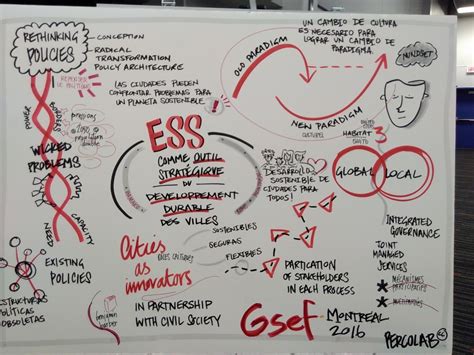 RETHINKING
POLICIES
CONCEPTION
RADICAL
TRANSFORMATION
POLICY ARCHITECTURE
LAS CIUDADES PUEDEN
CONFRONTAR PROBLEMAS PARA
UN PLANETA SOSTENIBLE
UN CAMBIO DE CULTURA
ES NECESARIO PARA
LOGRAR UN CAMBIO DE
PARADIGMA.
MINDSET
OLD PARADIGM
NEW PARADIGM
POWER
BORDERS
WICKED
PROBLEMS
NEED
CAPACITY
ESS
COMME OUTIL
STRATÉGIQUE
DU
DEVELOPPEMENT
DURABLE
DES VILLES
DESARROLLO
SOSTENIBLE DE
CIUDADES PARA
TODOS!
HABITAT
3
GLOBAL
LOCAL
SOSTENIBLES
SEGURAS
FLEXIBLES
INTEGRATED
GOVERNANCE
JOINT
MANAGED
SERVICES
EXISTING
POLICIES
ESTRUCTURAS
POLÍTICAS
OBSOLETAS
Cities
as
innovators
IN PARTNERSHIP
WITH CIVIL SOCIETY
PARTICATION
OF STAKEHOLDERS
IN EACH PROCESS
Gsef
MONTREAL
2016
PERCOLAB